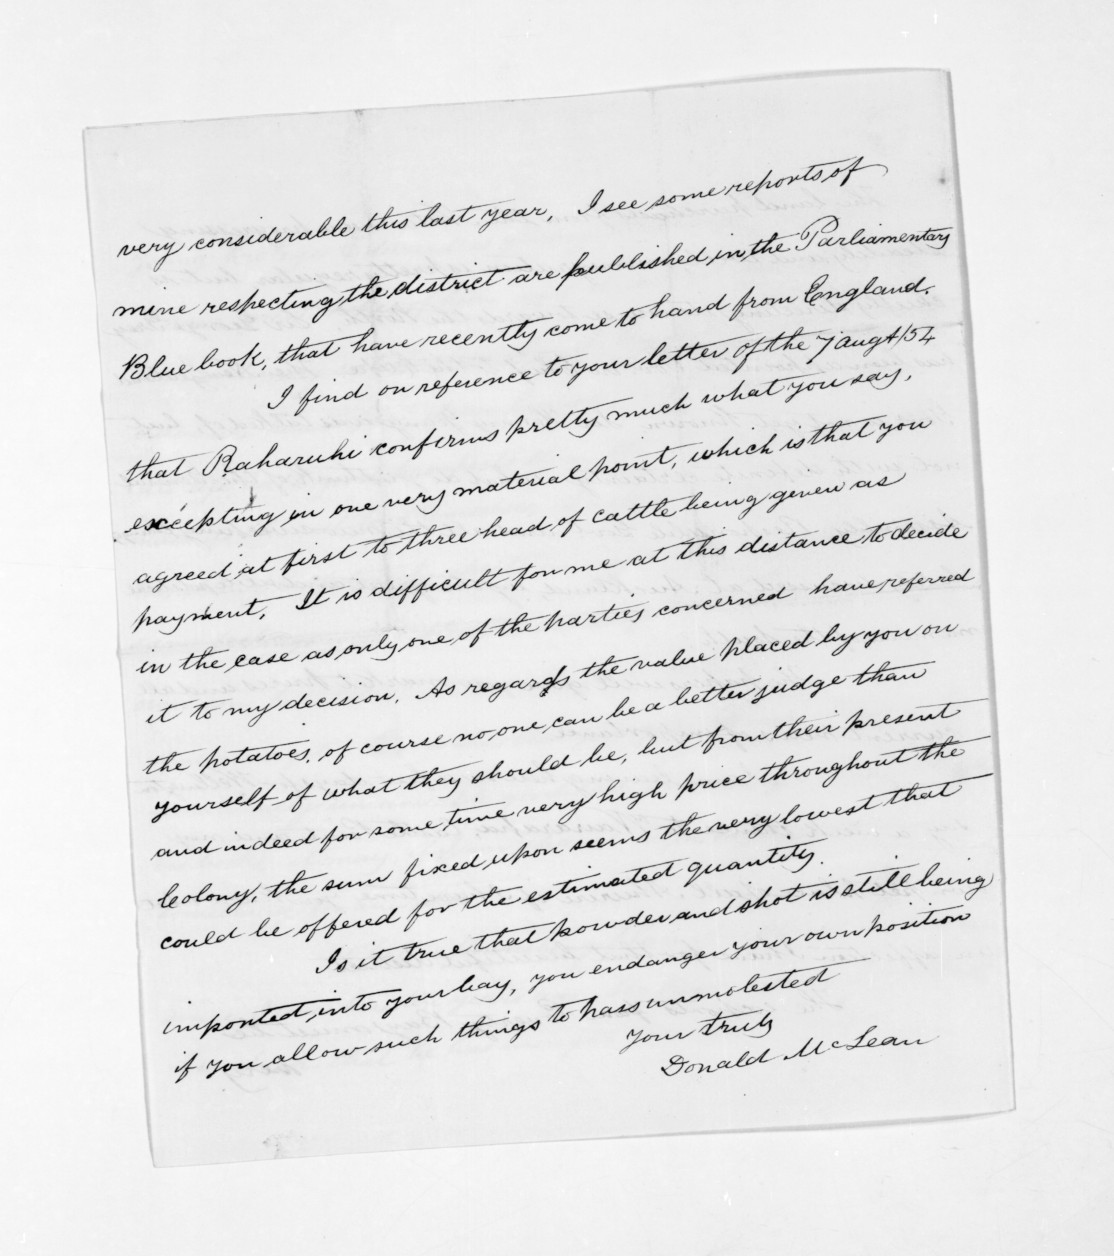 very considerable this last year, I see some reports of
mine respecting the district are published in the Parliamentary
Blue book, that have recently come to hand from England.
I find on reference to your letter of the 7 Augt/54
that Raharuhi confirms pretty much what you say,
excepting in one very material point, which is that you
agreed at first to three head of cattle being given as
payment. It is difficult for me at this distance to decide
in the case as only one of the parties concerned have referred
it to my decision. As regards the value placed by you on
the potatoes, of course no one can be a better judge than
yourself of what they should be, but from their present
and indeed for some time very high price throughout the
Colony, the sum fixed upon seems the very lowest that
could be offered for the estimated quantity.
Is it true that powder and shot is still being
imported into your bay, you endanger your own position
if you allow such things to pass unmolested
Your truly
Donald McLean